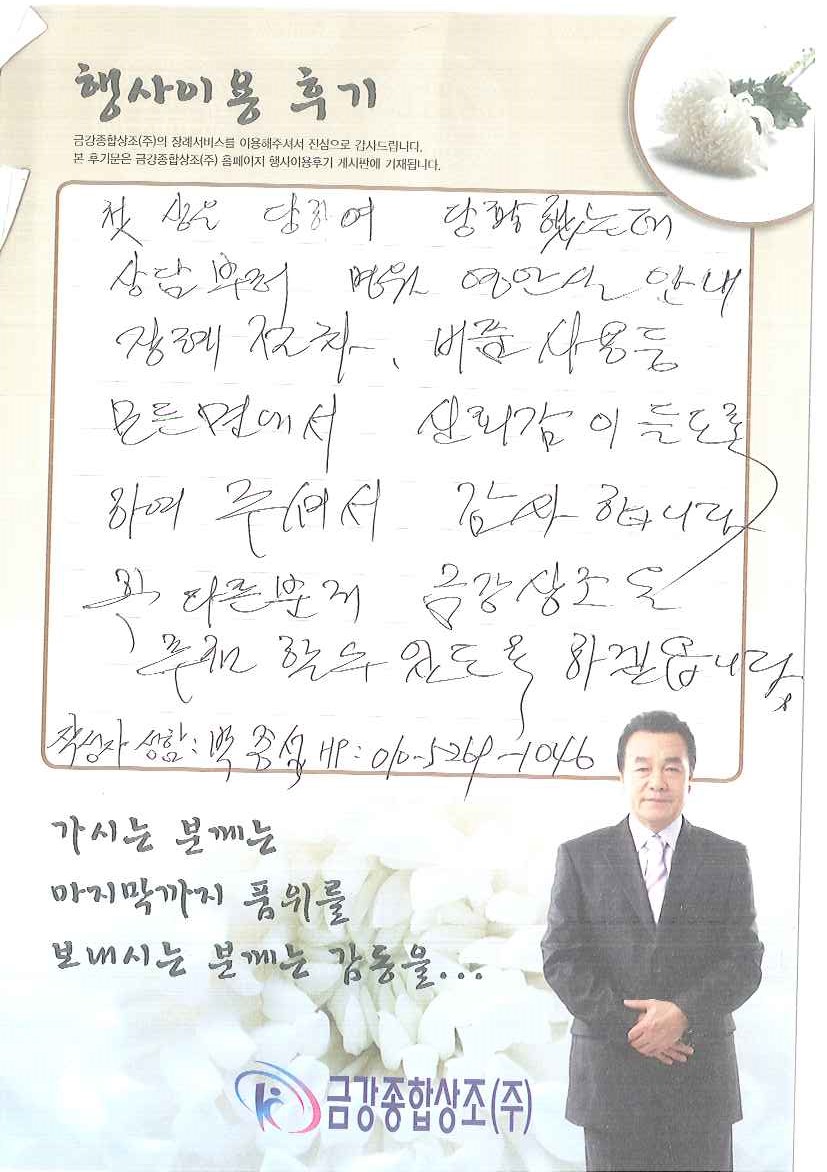 행사이용 후기
금강종합상조(주)의 장례서비스를 이용해주셔서 진심으로 감사드립니다.
본 후기문은 금강종합상조(주) 홈페이지 행사이용후기 게시판에 기재됩니다.
첫 상을 당하여 당황했는데
상담부터 병원 영안실 안내
장례 절차, 버스 사용등
모든면에서 신뢰감이 들도록
하여 주셔서 감사합니다
꼭 다른분께 금강상조을
추천 할수 있도록 하겠읍니다.
작성자 성함: 백종섭 HP: 010-5269-1046
가시는 분께는
마지막까지 품위를
보내시는 분께는 감동을...
금강종합상조(주)